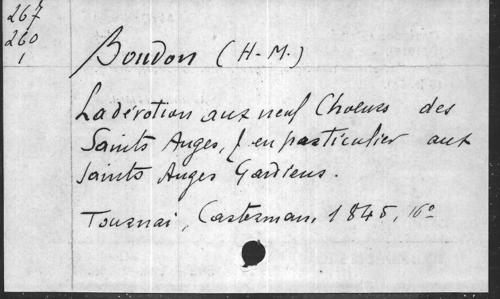 267
260
1
Boudon (H-M.)
La dévotion aux neuf Choeurs des
Saints Anges, & en particulier aux
saints Anges Gardiens.
Tournai, Casterman, 1845, 16º